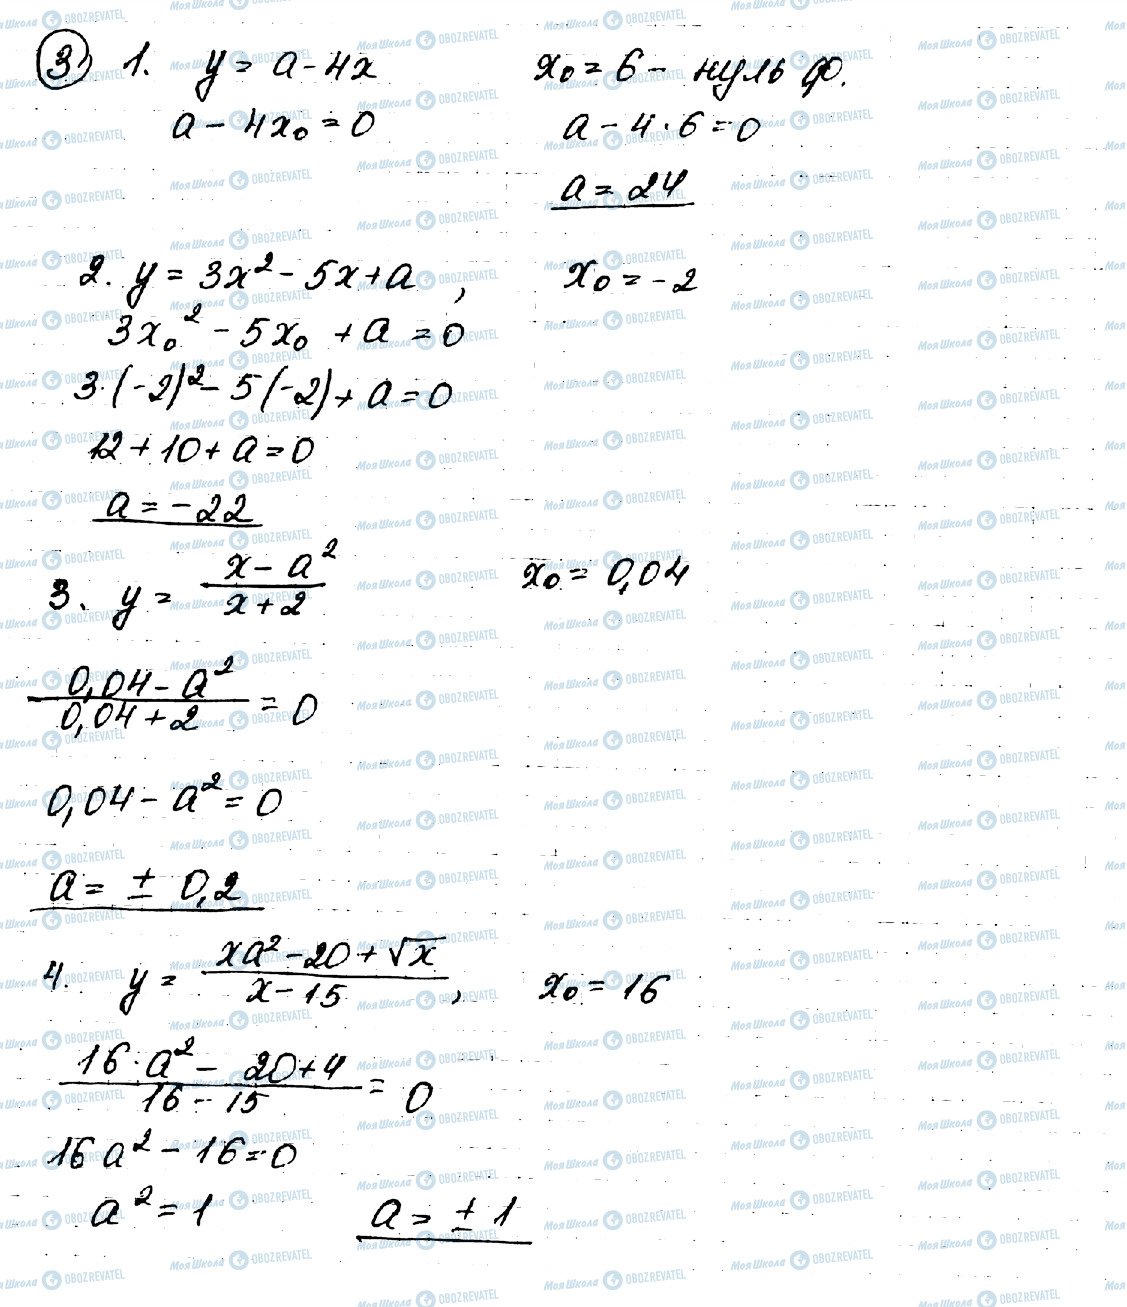 3) 1. y = a - 4x x₀ = 6 - нуль ф.
a - 4x₀ = 0 a - 4 · 6 = 0
a = 24
2. y = 3x² - 5x + a , x₀ = -2
3x₀² - 5x₀ + a = 0
3 · (-2)² - 5(-2) + a = 0
12 + 10 + a = 0
a = -22
3. y = (x - a²)/(x + 2) x₀ = 0,04
(0,04 - a²)/(0,04 + 2) = 0
0,04 - a² = 0
a = ± 0,2
4. y = (xa² - 20 + √x)/(x - 15) , x₀ = 16
(16 · a² - 20 + 4)/(16 - 15) = 0
16a² - 16 = 0
a² = 1 a = ± 1
МояШкола OBOZREVATEL